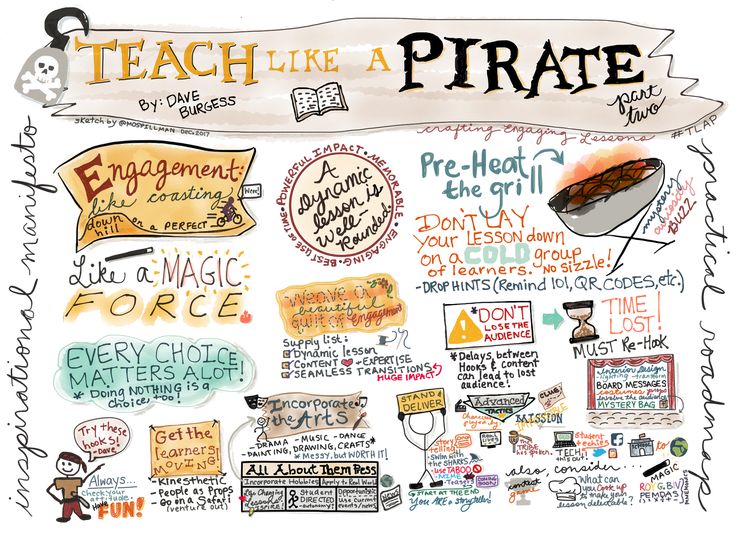 TEACH LIKE A PIRATE
By: DAVE
BURGESS
part
two
sketch by @MOSPILLMAN DEC 2017
crafting Engaging Lessons #TLAP
inspirational manifesto
practical roadmap
Engagement:
like coasting
down
hill on a PERFECT
Like a MAGIC
FORCE
EVERY CHOICE
MATTERS A LOT!
* Doing NOTHING is a
choice, too!
POWERFUL IMPACT • MEMORABLE • ENGAGING • BEST USE OF TIME
A
Dynamic
lesson is
Well-
Rounded.
Pre-Heat
the grill
DON'T LAY
your LESSON down
on a COLD group
of learners. NO SIZZLE!
- DROP HINTS (Remind 101, QR CODES, etc.)
mystery
curiosity
BUZZ
Weave a
beautiful
quilt of engagement
Supply list:
Dynamic lesson
CONTENT + EXPERTISE
SEAMLESS TRANSITIONS
HUGE IMPACT
*DON'T
LOSE THE
AUDIENCE
* Delays between
Hooks & content
can lead to lost
audience!
TIME
LOST!
MUST Re-Hook
Interior Design
lighting transform
BOARD MESSAGES
costumes props
involve the audience
MYSTERY BAG
Try these
hooks!
Dave
Always...
check your
HAVE FUN!
Get the
learners
MOVING!
- Kinesthetic
- People as Props
- Go on a Safari!
(venture out)
Incorporate
the Arts
- DRAMA - MUSIC - DANCE
- PAINTING, DRAWING, CRAFTS
* Messy, but WORTH IT!
All About Them
Incorporate Hobbies
Apply to Real World
Life Changing
Lessons
inspire!
Student
DIRECTED
- autonomy!
Opportunistic
use current
events/news
NEWS
STAND &
DELIVER
START AT THE END
YOU ARE a storyteller
Advanced
TACTICS
MISSION
story
telling
- Swim with
the SHARKS
- use TABOO
- MIME
- Teasers
THE
TRIBE
student
techies
TECH
also, consider
contest
game
What can
you Cook up
to make your
lesson delectable?
MAGIC
ROY G. BIV
PEMDAS
MNEMONICS